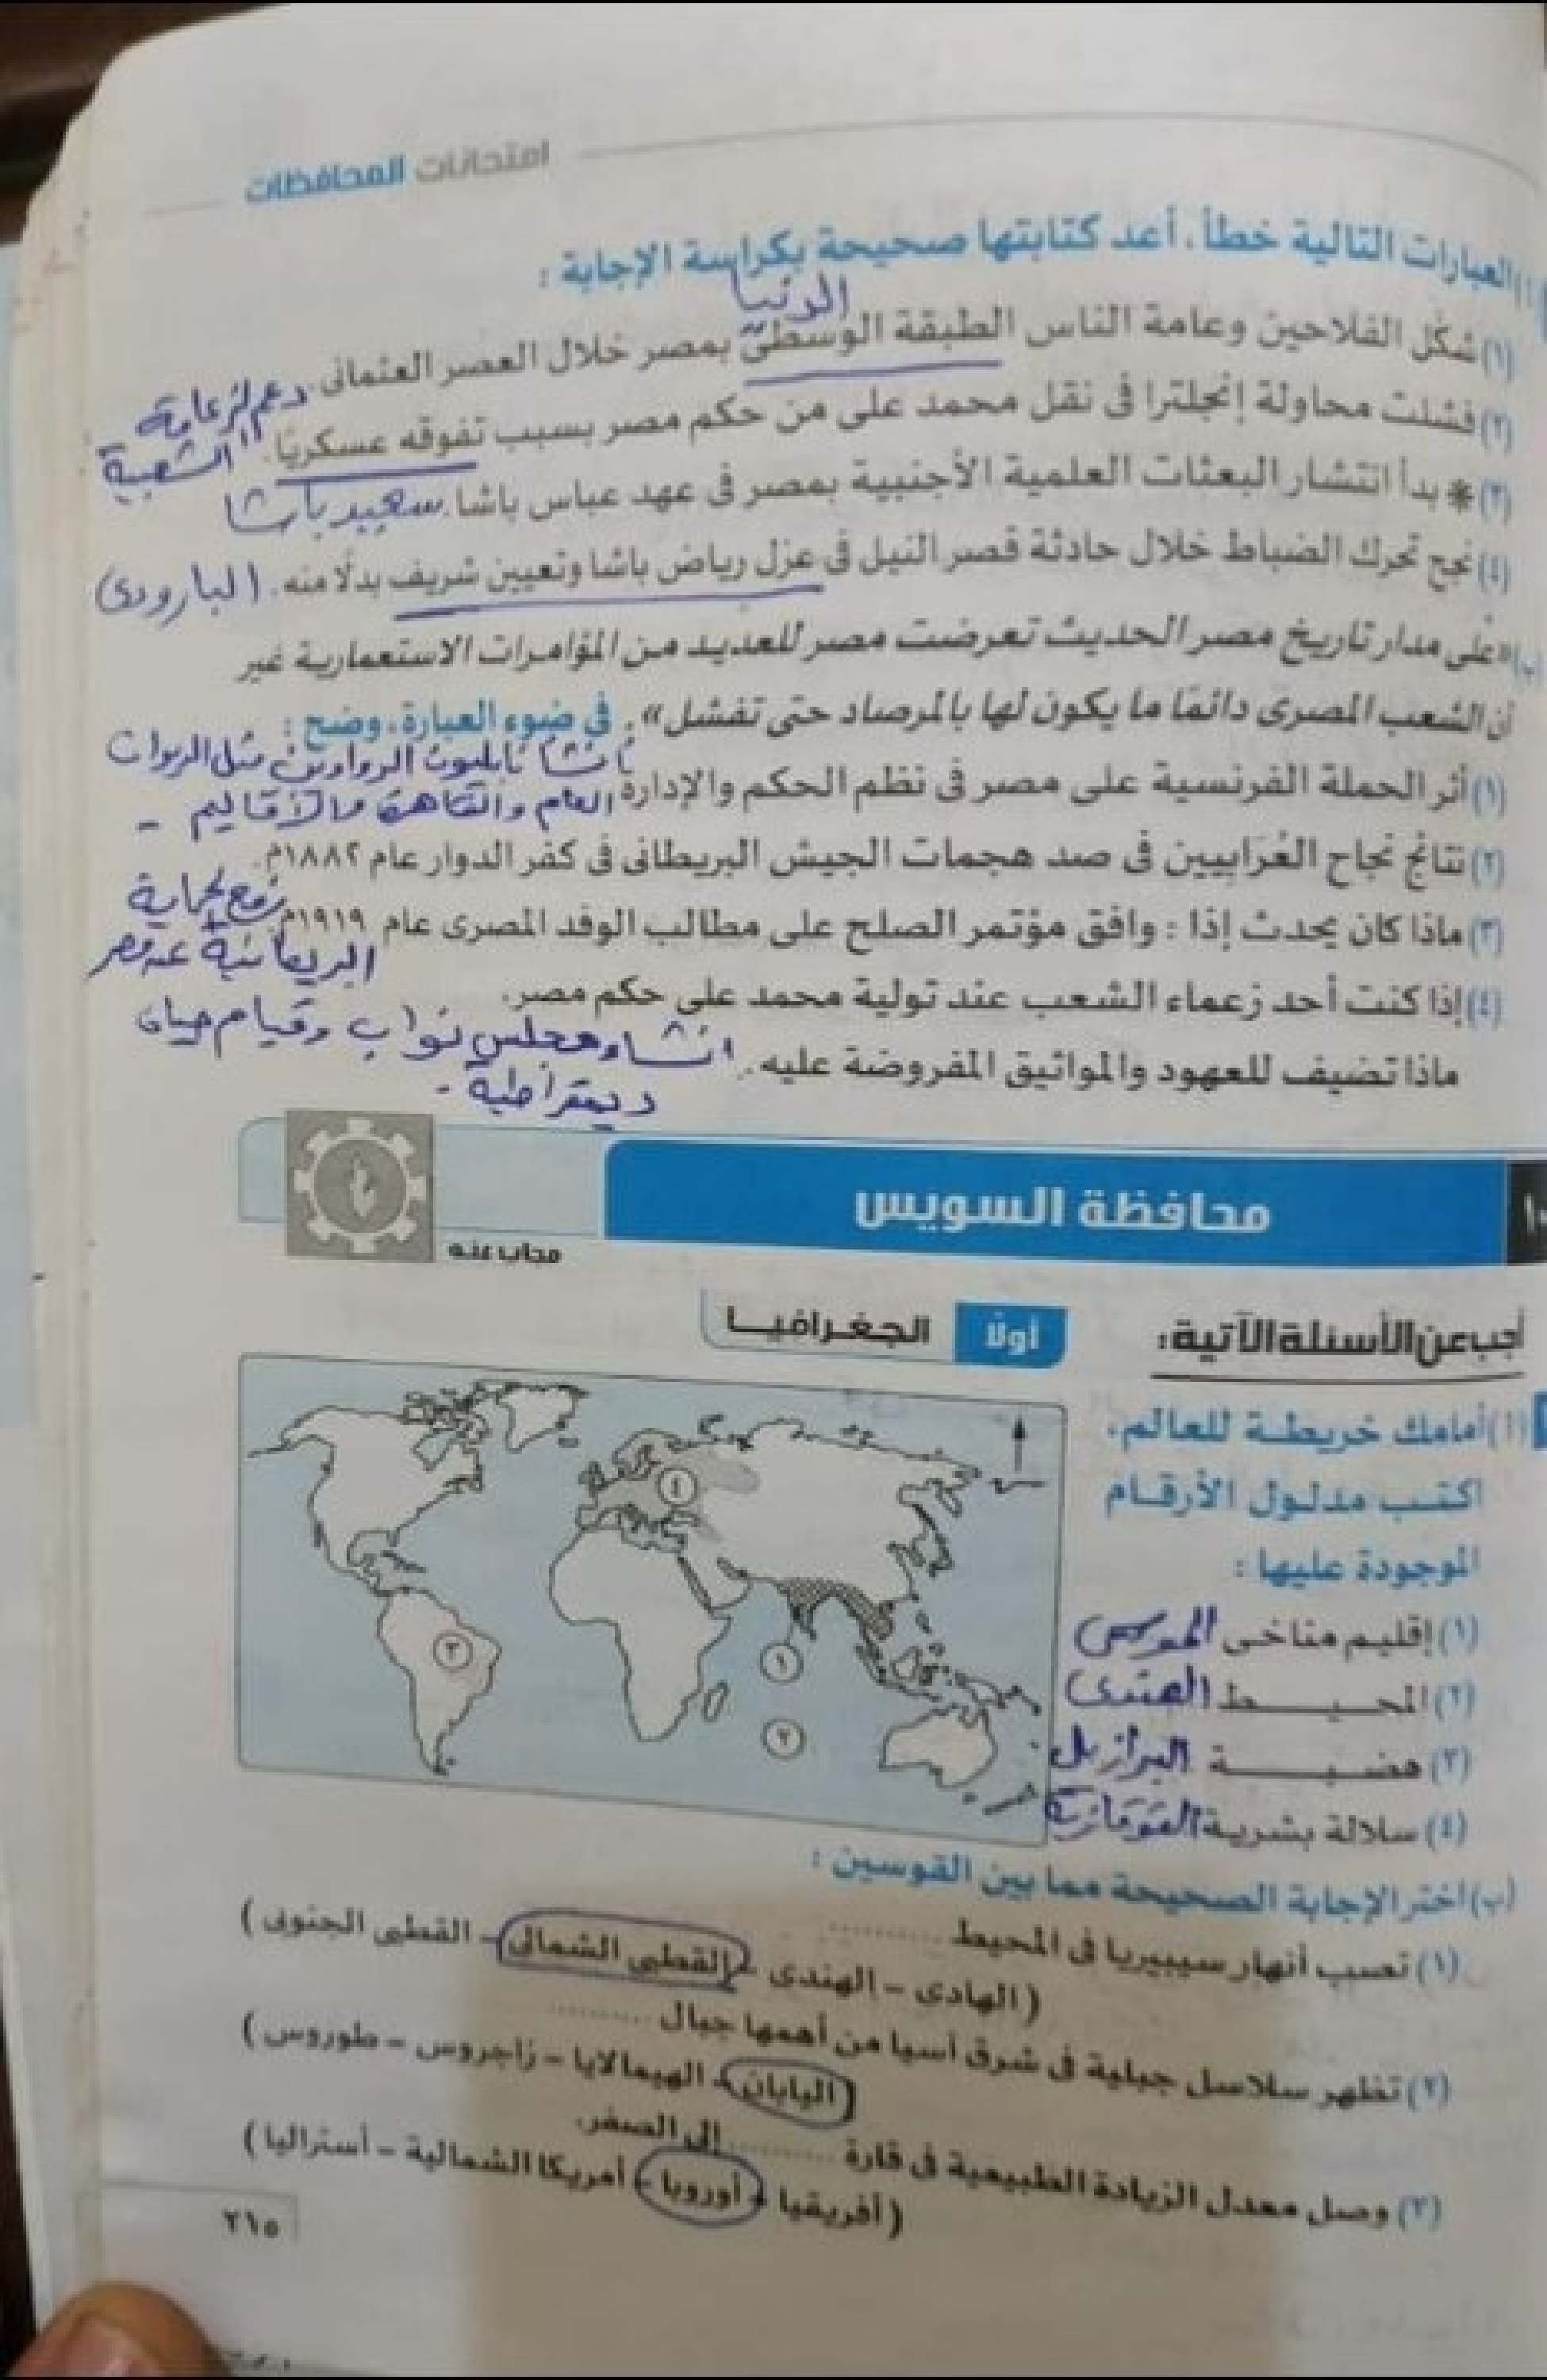 امتحانات المحافظات
العبارات التالية خطأ، أعد كتابتها صحيحة بكراسة الإجابة :
الدنيا
(١) شكَّل الفلاحين وعامة الناس الطبقة الوسطى بمصر خلال العصر العثمانى.
دعم الزعامة
(٢) فشلت محاولة إنجلترا فى نقل محمد على من حكم مصر بسبب تفوقه عسكريًا.
الشعبية
(٣) * بدأ انتشار البعثات العلمية الأجنبية بمصر فى عهد عباس باشا. سعيد باشا
(٤) نجح تحرك الضباط خلال حادثة قصر النيل فى عزل رياض باشا وتعيين شريف بدلًا منه. (البارودى)
(ب) «على مدار تاريخ مصر الحديث تعرضت مصر للعديد من المؤامرات الاستعمارية غير
أن الشعب المصرى دائمًا ما يكون لها بالمرصاد حتى تفشل». فى ضوء العبارة، وضح :
نابليون الدواوين مثل الديوان
(١) أثر الحملة الفرنسية على مصر فى نظم الحكم والإدارة
العام والقاهرة والأقاليم -
(٢) نتائج نجاح العُرَابيين فى صد هجمات الجيش البريطانى فى كفر الدوار عام ١٨٨٢م.
(٣) ماذا كان يحدث إذا : وافق مؤتمر الصلح على مطالب الوفد المصرى عام ١٩١٩م.
البريطانية عن مصر
(٤) إذا كنت أحد زعماء الشعب عند تولية محمد على حكم مصر.
انشاء مجلس نواب وقيام حياة
ماذا تضيف للعهود والمواثيق المفروضة عليه.
ديمقراطية -
محافظة السويس
مجاب عنه
أجب عن الأسئلة الآتية :
أولًا الجغرافيا
(أ) أمامك خريطة للعالم،
اكتب مدلول الأرقام
الموجودة عليها :
(١) إقليم مناخى الموسمى
(٢) المحيط الهندى
(٣) هضبة البرازيل
(٤) سلالة بشرية القوقازية
٤
٣
١
٢
(ب) اختر الإجابة الصحيحة مما بين القوسين :
(١) تصب أنهار سيبيريا فى المحيط ..........
(الهادى - الهندى - القطبى الشمالى - القطبى الجنوبى)
(٢) تظهر سلاسل جبلية فى شرق آسيا من أهمها جبال ..........
(اليابان - الهيمالايا - زاجروس - طوروس)
(٣) وصل معدل الزيادة الطبيعية فى قارة .......... إلى الصفر.
(أفريقيا - أوروبا - أمريكا الشمالية - أستراليا)
٢١٥